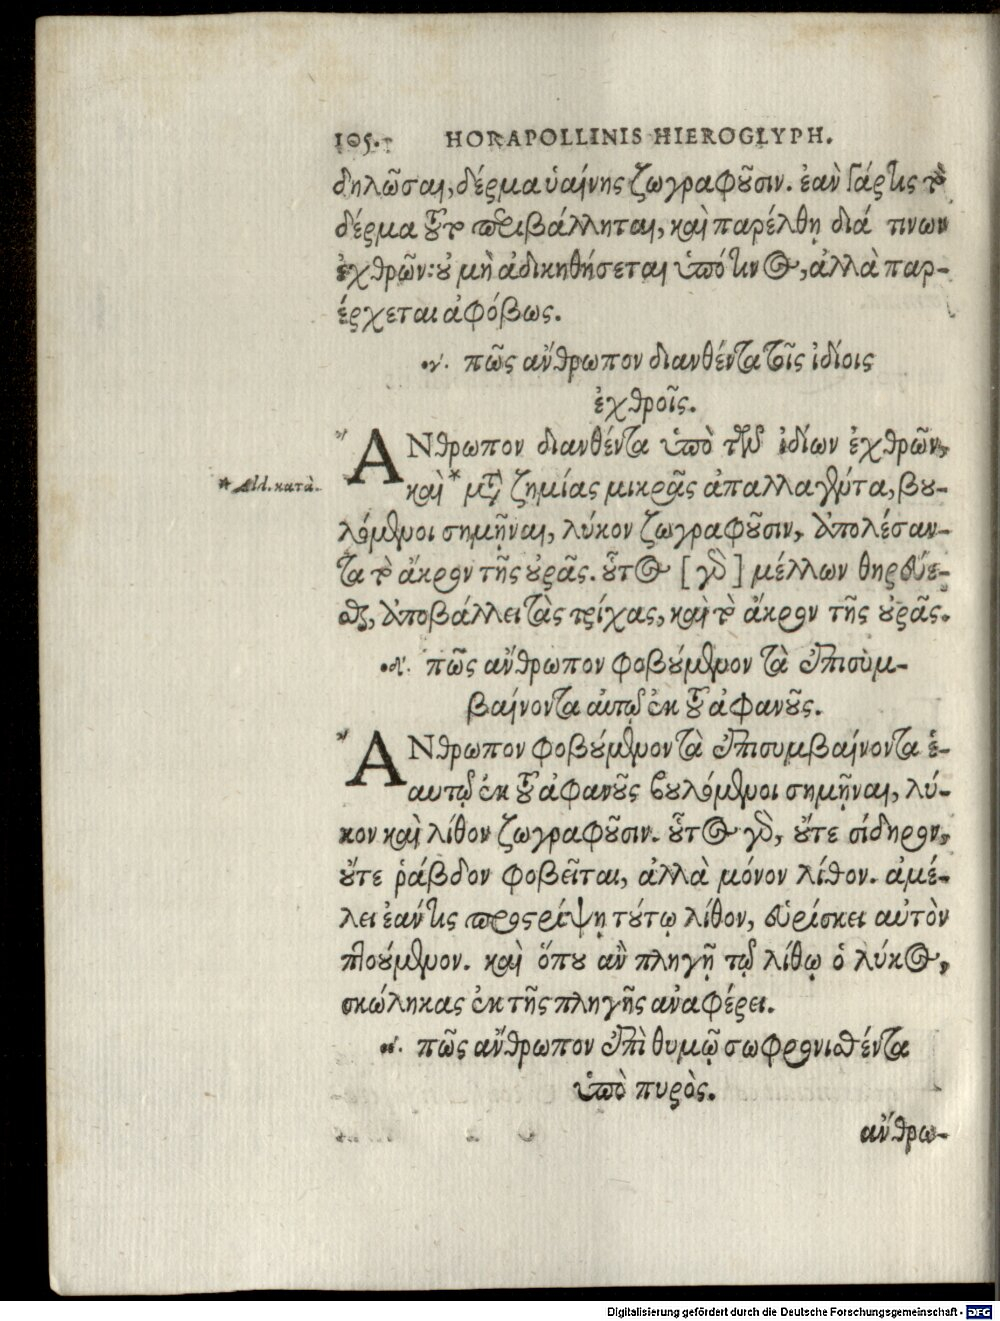 106. HORAPOLLINIS HIEROGLYPH.
δηλῶσαι, δέρμα ὑαίνης ζωγραφοῦσιν. ἐὰν γάρ τις τὸ
δέρμα τοῦτο περιβάλληται, καὶ παρέλθῃ διά τινων
ἐχθρῶν: οὐ μὴ ἀδικηθήσεται ὑπό τινος, ἀλλὰ παρ-
έρχεται ἀφόβως.
ογ´. πῶς ἄνθρωπον διανθέντα τοῖς ἰδίοις
ἐχθροῖς.
ΑΝθρωπον διανθέντα ὑπὸ τῶν ἰδίων ἐχθρῶν,
* Ald. κατὰ.
καὶ * μετὰ ζημίας μικρᾶς ἀπαλλαγέντα, βου-
λόμενοι σημῆναι, λύκον ζωγραφοῦσιν, ἀπολέσαν-
τα τὸ ἄκρον τῆς οὐρᾶς. οὗτος [γὰρ] μέλλων θηρεύε-
σθαι, ἀποβάλλει τὰς τρίχας, καὶ τὸ ἄκρον τῆς οὐρᾶς.
οδ´. πῶς ἄνθρωπον φοβούμενον τὰ ἐπισυμ-
βαίνοντα αὐτῷ ἐκ τοῦ ἀφανοῦς.
ΑΝθρωπον φοβούμενον τὰ ἐπισυμβαίνοντα ἑ-
αυτῷ ἐκ τοῦ ἀφανοῦς βουλόμενοι σημῆναι, λύ-
κον καὶ λίθον ζωγραφοῦσιν. οὗτος γὰρ, οὔτε σίδηρον,
οὔτε ῥάβδον φοβεῖται, ἀλλὰ μόνον λίθον. ἀμέ-
λει ἐάν τις προςρίψῃ τούτῳ λίθον, εὑρίσκει αὐτὸν
πτοούμενον. καὶ ὅπου ἂν πληγῇ τῷ λίθῳ ὁ λύκος,
σκώληκας ἐκ τῆς πληγῆς ἀναφέρει.
οε´. πῶς ἄνθρωπον ἐπὶ θυμῷ σωφρονισθέντα
ὑπὸ πυρὸς.
ἄνθρω-
Digitalisierung gefördert durch die Deutsche Forschungsgemeinschaft - DFG